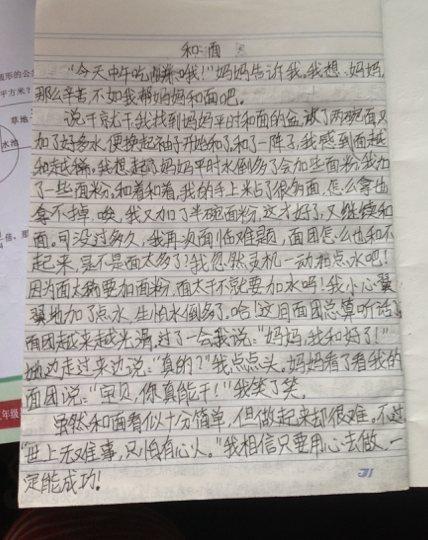 和面
"今天中午吃酥哦!"妈妈告诉我。我想,妈妈
那么辛苦不如我帮妈妈和面吧。
说干就干,我找到妈妈平时和面的盆,放了两碗面又
加了好多水,便挽起袖子开始和了,和了一阵子,我感到面越
和越稀。我想起了妈妈平时水倒多了会加些面粉,我加
了一些面粉,和着和着,我的手上粘了很多面,怎么拿也
拿不掉,唉,我又加了半碗面粉,这才好了,又继续和
面。可没过多久,我再次面临难题,面团怎么也和不
起来,是不是面太多了?我忽然灵机一动加点水吧!
因为面太稀要加面粉,面太干不就要加水吗!我小心翼
翼地加了点水,生怕水倒多了,哈!这时面团总算听话了
面团越来越光滑,过了一会我说:"妈妈,我和好了!"
她边走过来边说:"真的?"我点点头。妈妈看了看我的
面团说:"宝贝,你真能干!"我笑了笑。
虽然和面看似十分简单,但做起来却很难。不过
"世上无难事,只怕有心人。"我相信只要用心去做,一
定能成功!
形的公
平方米?
草地
水池
倍、那
年级